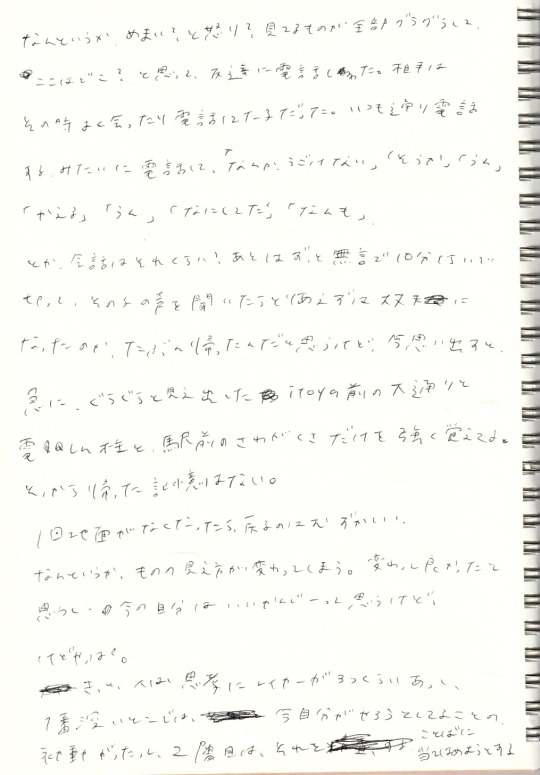 なんというか、めまい？と怒り？見てるものが全部グラグラして、
ここはどこ？と思って、友達に電話した。相手は
その時よく会ったり電話してた
いつも通り電話
する、みたいに電話して、「なんか、うごけない」「そうか」「うん」
「かえる」「うん」「なにしてた」「なんも」
とか、会話はそれくらい、あとはずっと無言で10分くらいい
その子の声を聞いたら
なったのか、たぶん帰ったんだと思うけど、今思い出すと、
急に、ぐらぐらと見え出した itoyaの前の大通りと
電 と、駅前のさわがしさだけを強く覚えてる。
そっから帰った記憶はない。
1回地面がなくなったら、戻るのは
なんというか、ものの見え方が変わってしまう。変わって良かったと
思うし、今の自分はいいかんじーって思うけど、
けどやっぱ。
きっと、人は思考にレイヤーが3つくらいあって、
1番深いとこでは、今自分がやろうとしてることの、
衝動があったり、2層目は、それを ことばに
当てはめようとする